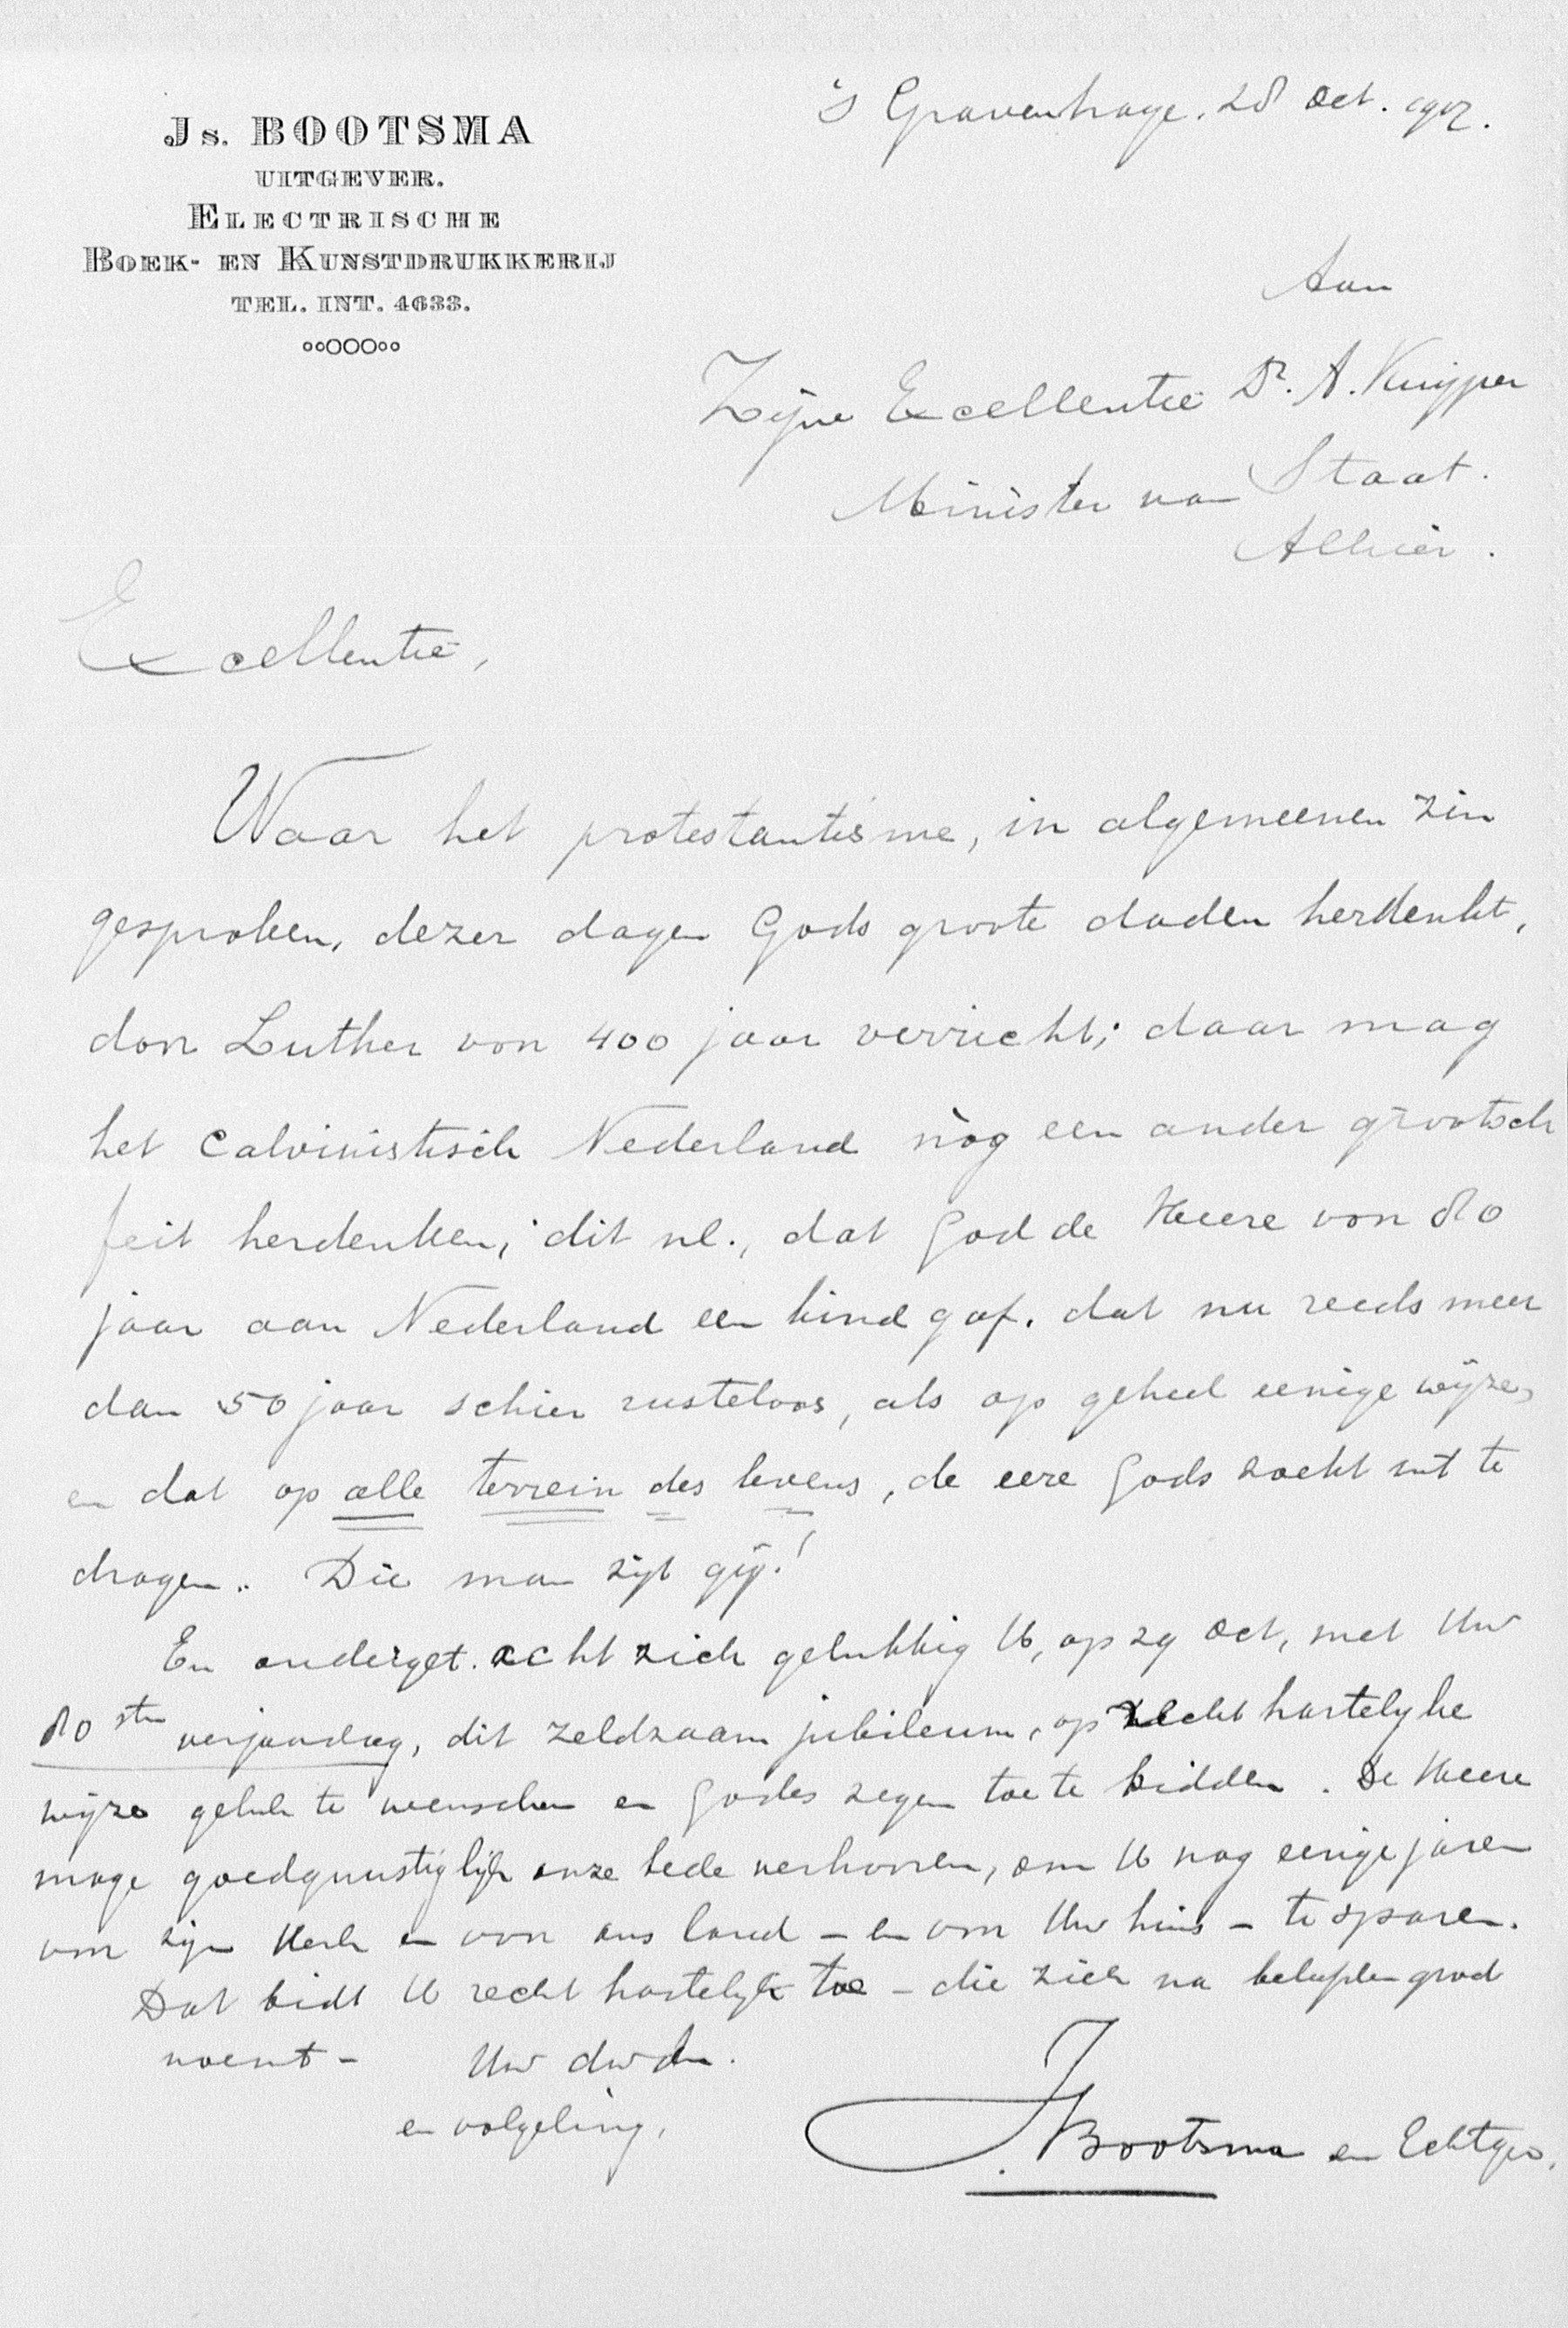 Js. BOOTSMA
UITGEVER.
ELECTRISCHE
BOEK- EN KUNSTDRUKKERIJ
TEL. INT. 4633.
's Gravenhage, 28 Oct. 1917.
Aan
Zijne Excellentie Dr. A. Kuijper
Minister van Staat.
Alhier.
Excellentie,
Waar het protestantisme, in algemeenen zin
gesproken, dezer dagen Gods groote daden herdenkt,
door Luther voor 400 jaar verricht; daar mag
het Calvinistisch Nederland nòg een ander grootsch
feit herdenken; dit nl., dat God de Heere voor 80
jaar aan Nederland een kind gaf, dat nu reeds meer
dan 50 jaar schier rusteloos, als op geheel eenige wijze,
en dat op alle terrein des levens, de eere Gods zoekt uit te
dragen. Die man zijt gij!
En onderget. acht zich gelukkig U, op 29 Oct, met Uw
80sten verjaardag, dit zeldzaam jubileum, op recht hartelijke
wijze geluk te wenschen en Godes zegen toe te bidden. De Heere
moge goedgunstiglijk onze bede verhooren, om U nog eenige jaren
voor zijn Kerk en voor ons land - en voor Uw huis - te sparen.
Dat bidt U recht hartelijk toe - die zich na beleefden groet
noemt - Uw dw dn.
en volgeling,
Js. Bootsma en Echtgen.